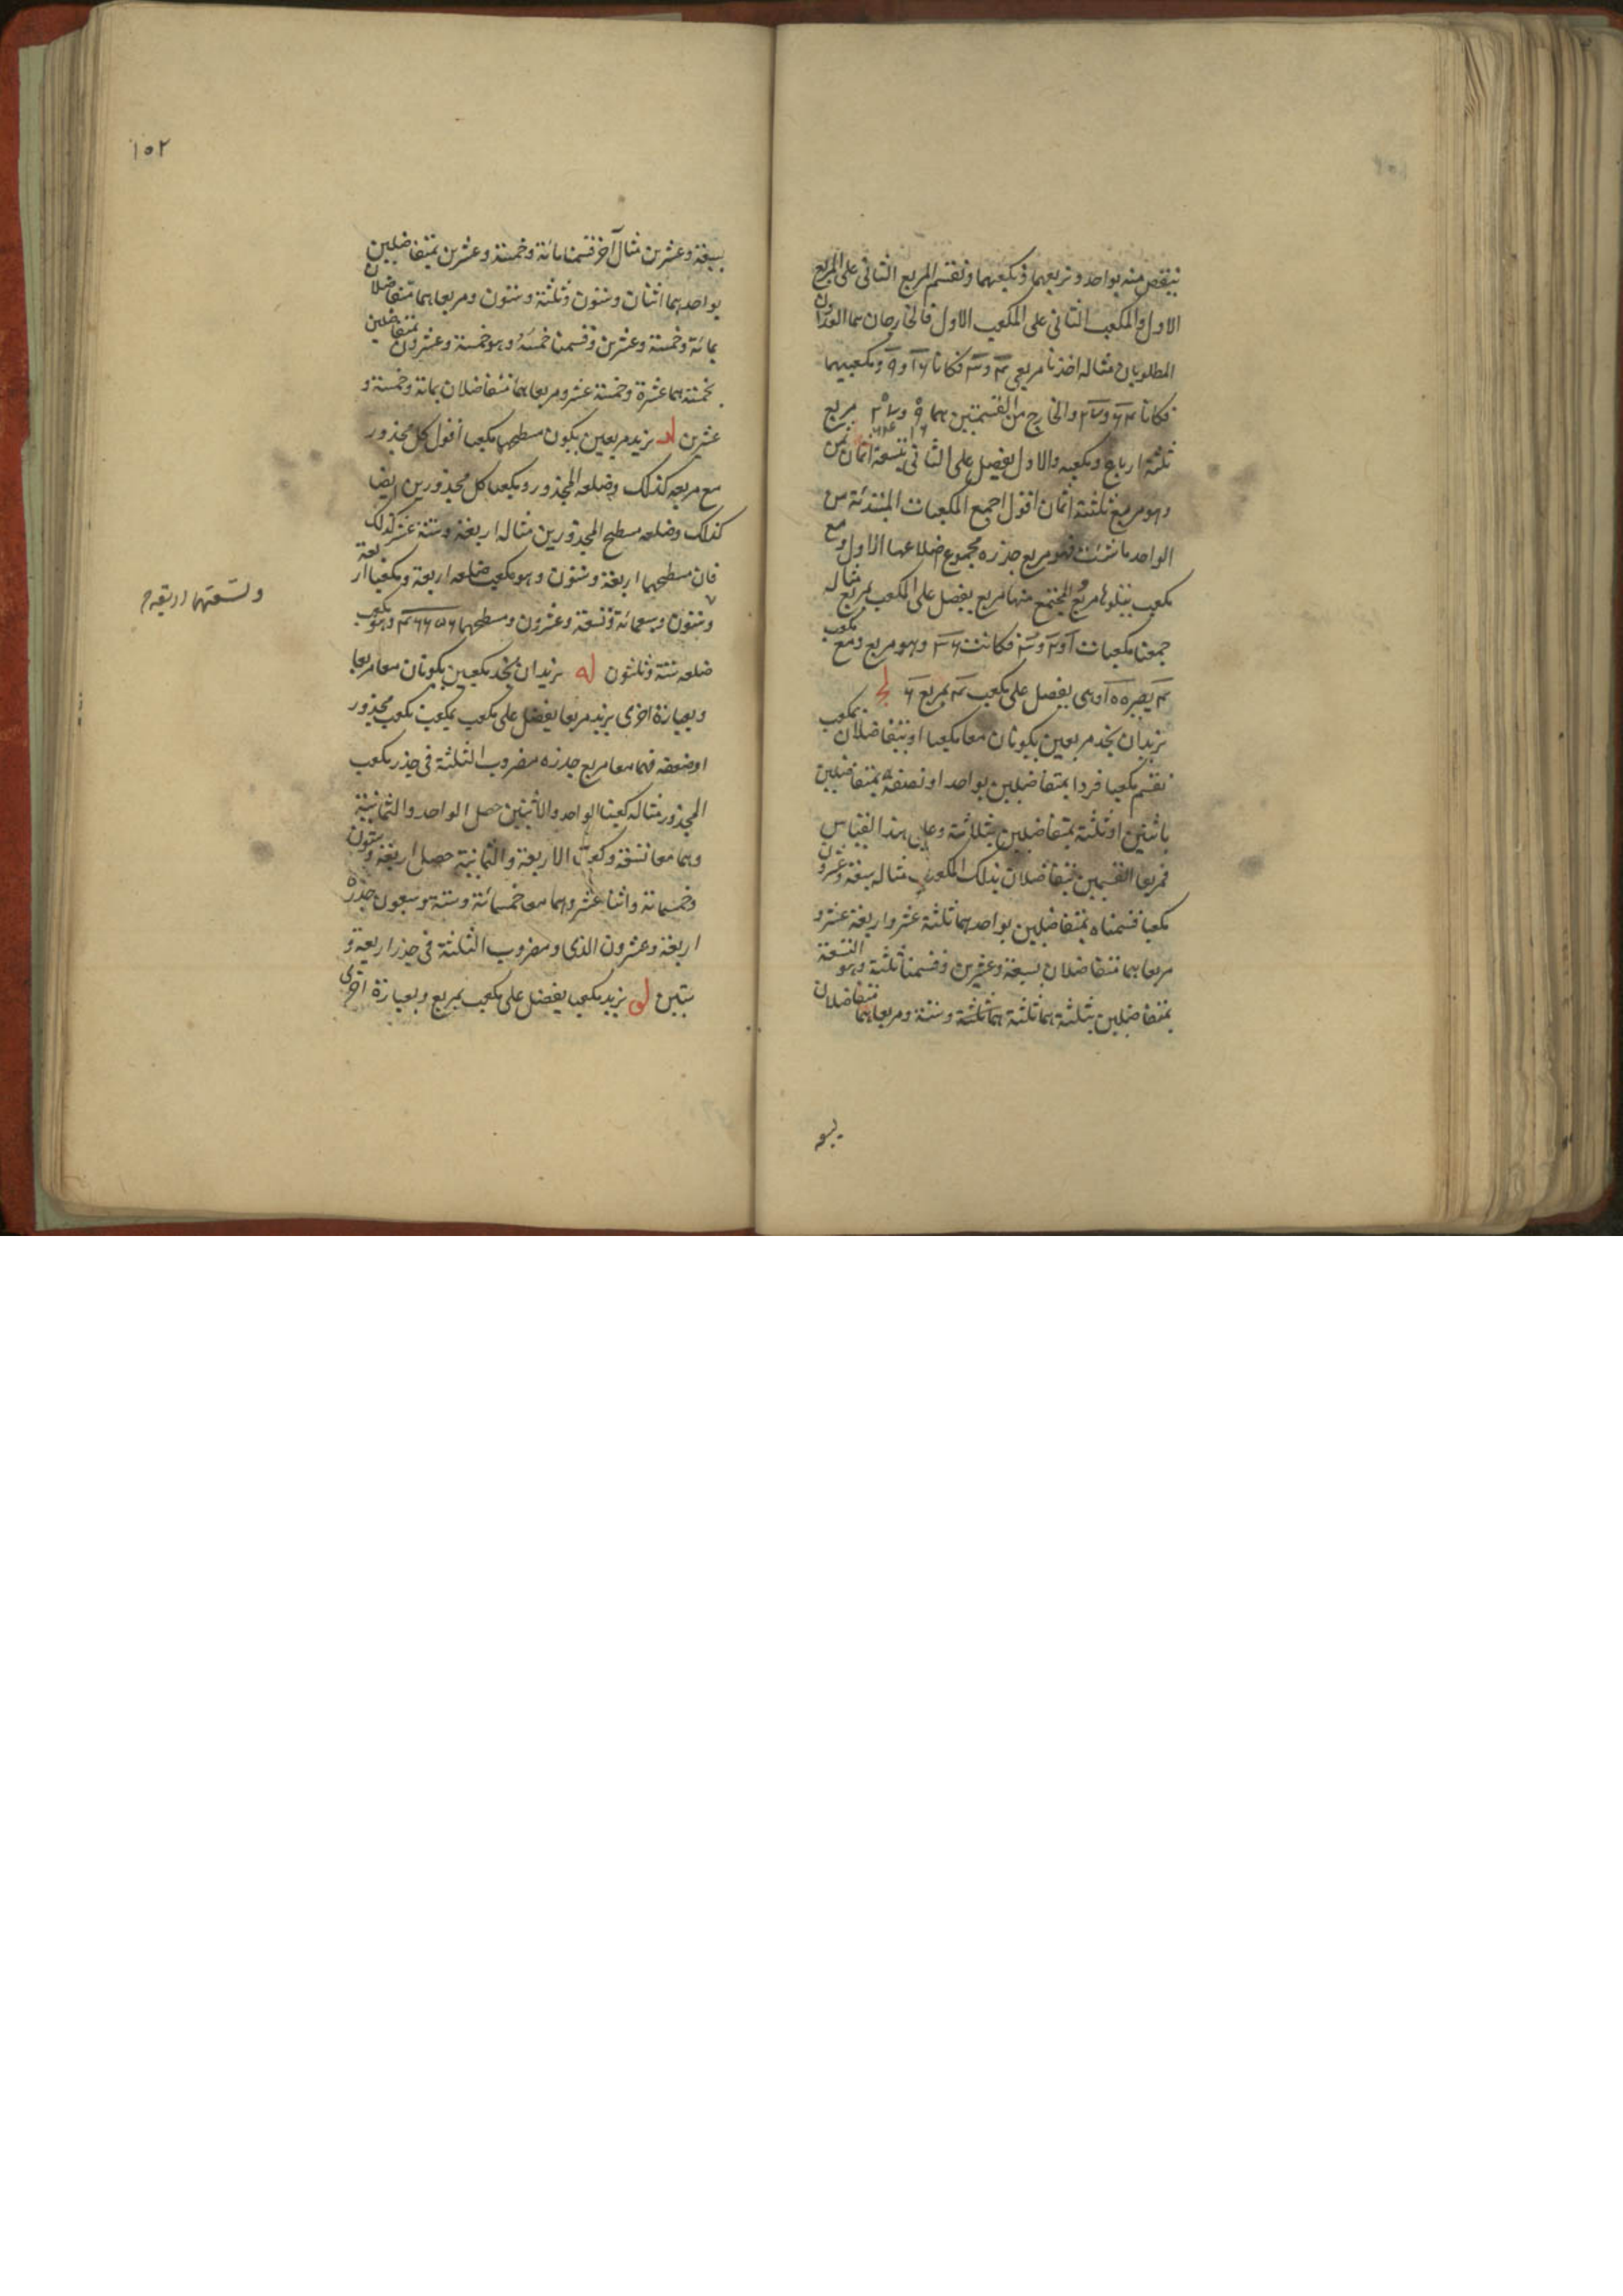 ينقص منه بواحد ونربعهما ونكعبهما ونقسم المربع الثانى على المربع
الاول والمكعب الثانى على المكعب الاول فالخارجان هما العددان
المطلوبان مثاله اخذنا مربعى ٤ و٣ فكانا ١٦ و ٩ ومكعبيهما
فكانا ٦٤ و ٢٧ والخارج من القسمتين هما ٩ و ٢٧ مربع
١٦ ٦٤
ثلثة ارباع ومكعبه والاول يفضل على الثانى بتسعة اثمان ثمن
وهو مربع ثلثة اثمان اقول اجمع المكعبات المبتدئة من
الواحد ما شئت فهو مربع جذره مجموع اضلاعها الاول ومع
مكعب يتلوها مربع المجتمع منها مربع يفضل على المكعب بمربع مثاله
جمعنا مكعبات ا و ٢ و ٣ فكانت ٣٦ وهو مربع ومع مكعب
٤ يصير ١٠٠ وهى يفضل على مكعب ٤ بمربع ٦ لج
نريدان نجد مربعين يكونان معا مكعبا او يتفاضلان بمكعب
نقسم مكعبا فردا بمتفاضلين بواحد او نصفه بمتفاضلين
باثنين او ثلثه بمتفاضلين بثلاثة وعلى هذا القياس
فمربعا القسمين يتفاضلان بذلك المكعب مثاله سبعة وعشرون
مكعبا قسمناه بمتفاضلين بواحد هما ثلثة عشر واربعة عشر و
مربعاهما متفاضلان بسبعة وعشرين وقسمنا ثلثه وهو التسعة
بمتفاضلين بثلثة هما ثلثة هما ثلثة وستة ومربعاهما متفاضلان
بسبعة
١٥٢
بسبعة وعشرين مثال آخر قسمنا مائة وخمسة وعشرين بمتفاضلين
بواحد هما اثنان وستون وثلثة وستون ومربعاهما متفاضلان
بمائة وخمسة وعشرين وقسمنا خمسه وهو خمسة وعشرون بمتفاضلين
بخمسة هما عشرة وخمسة عشر ومربعاهما متفاضلان بمائة وخمسة و
عشرين لد نريد مربعين يكون مسطحهما مكعبا اقول كل مجذور
مع مربعه كذلك وضلعه المجذور ومكعبا كل مجذورين ايضا
كذلك وضلعه مسطح المجذورين مثاله اربعة وستة عشر كذلك
فان مسطحهما اربعة وستون وهو مكعب ضلعه اربعة ومكعبا اربعة
وستون وسبعمائة وتسعة وعشرون ومسطحهما ٤٦٦٥٦ وهو مكعب
ضلعه ستة وثلثون له نريد ان نجد مكعبين يكونان معا مربعا
وبعبارة اخرى نريد مربعا يفضل على مكعب بمكعب نكعب مجذور
او ضعفه فهما معا مربع جذره مضروب الثلثة فى جذر مكعب
المجذور مثاله كعبنا الواحد والاثنين حصل الواحد والثمانية
وهما معا تسعة وكعبنا الاربعة والثمانية حصل اربعة وستون
وخمسمائة واثنا عشر وهما معا خمسمائة وستة وسبعون جذره
اربعة وعشرون الذى ومضروب الثلثة فى جذر اربعة و
ستين لو نريد مكعبا يفضل على مكعب بمربع وبعبارة اخرى